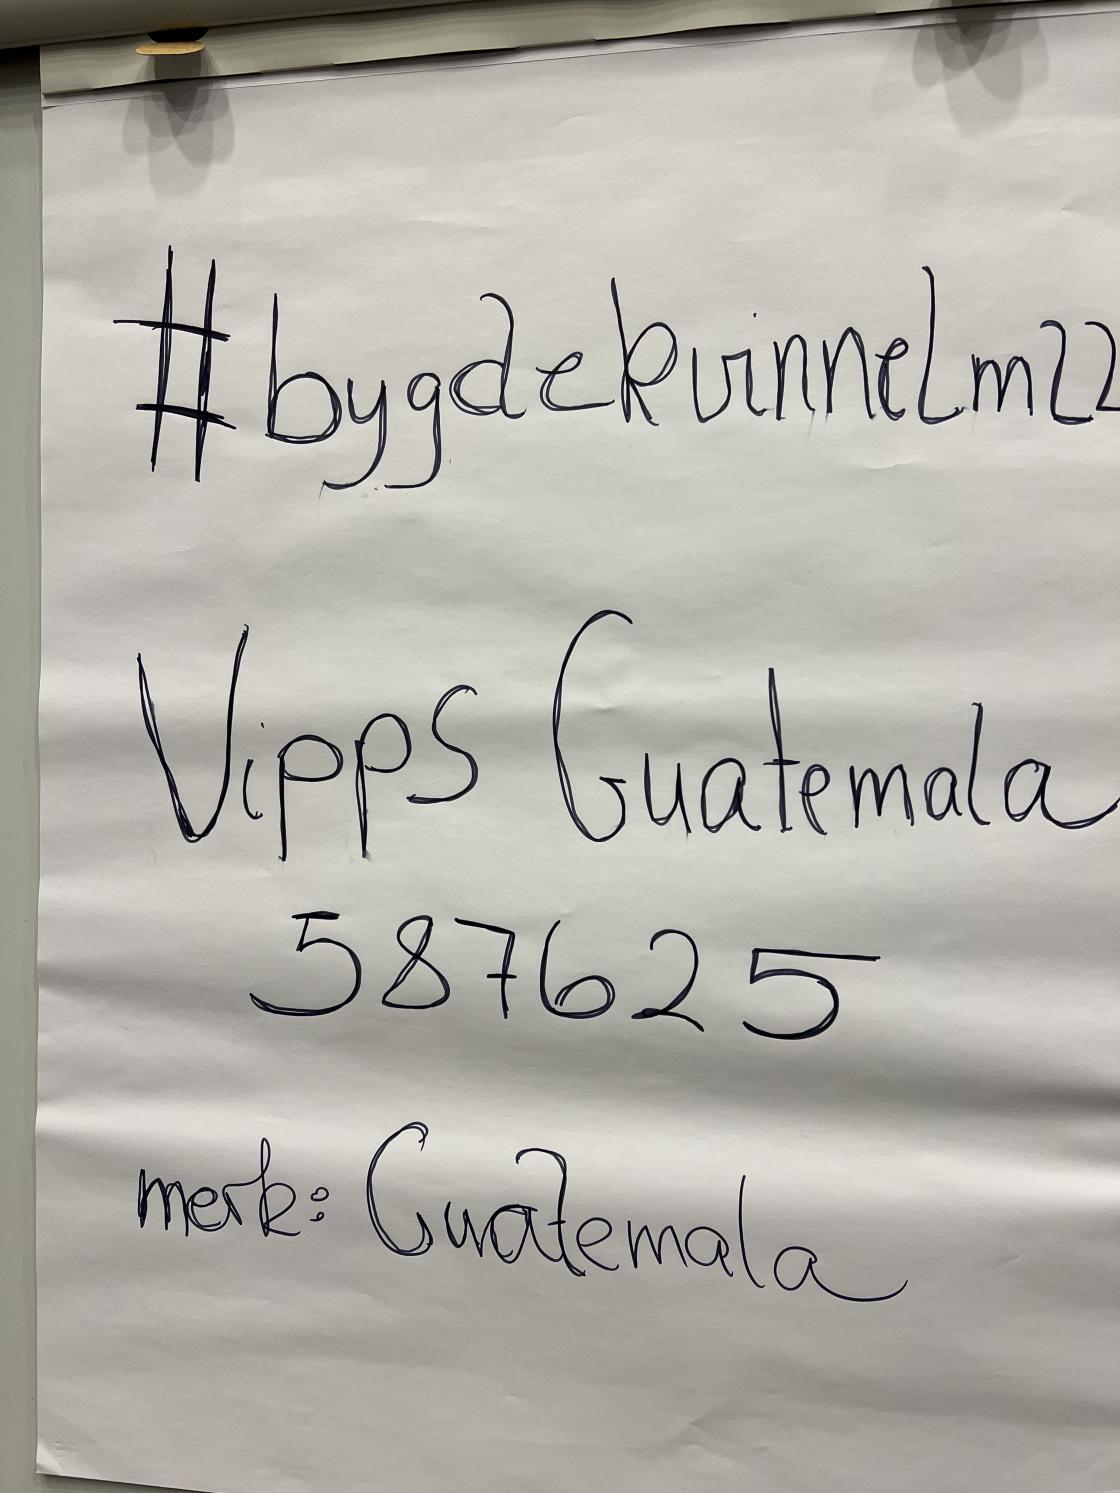 #bygdekvinnelm22
Vipps Guatemala
587625
merk: Guatemala